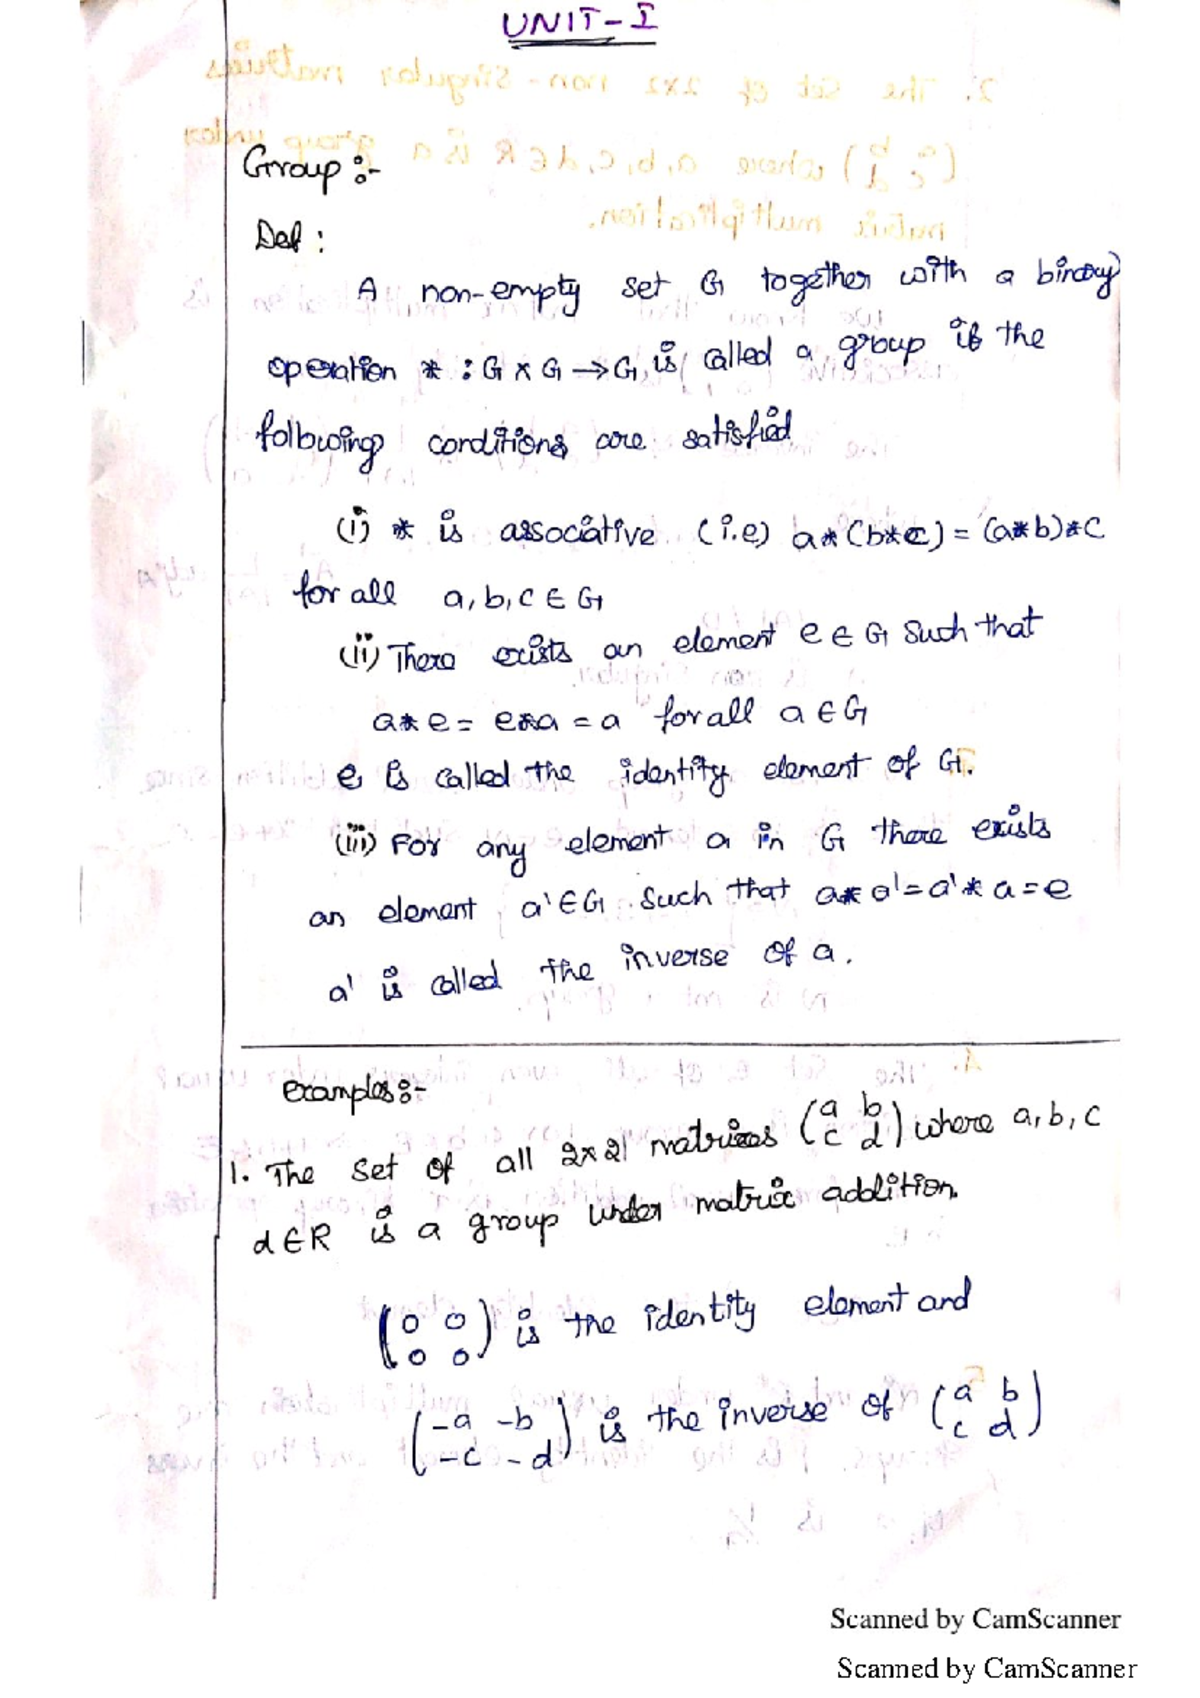 UNIT-I
Group :-
Def :
A non-empty set G together with a binary
operation * : G x G → G is called a group if the
following conditions are satisfied
(i) * is associative (i.e) a*(b*c) = (a*b)*c
for all a, b, c ∈ G
(ii) There exists an element e ∈ G such that
a*e = e*a = a for all a ∈ G
e is called the identity element of G.
(iii) For any element a in G there exists
an element a' ∈ G such that a*a' = a'*a = e
a' is called the inverse of a.
Examples :-
1. The set of all 2x2 matrices (a b
c d) where a, b, c
d ∈ R is a group under matrix addition.
(0 0
0 0) is the identity element and
(-a -b
-c -d) is the inverse of (a b
c d)
Scanned by CamScanner
Scanned by CamScanner